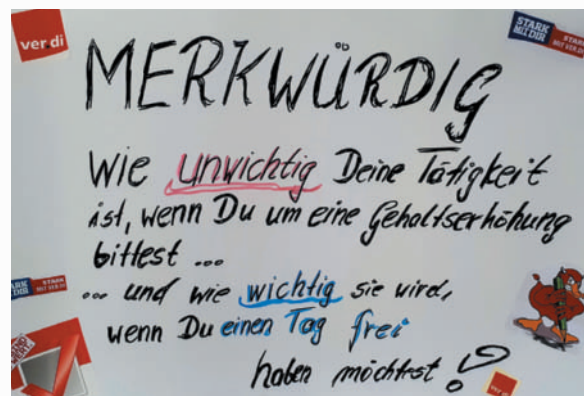 ver.di
STARK
MIT DIR
STARK
MIT VER.DI
MERKWÜRDIG
Wie unwichtig Deine Tätigkeit
ist, wenn Du um eine Gehaltserhöhung
bittest ...
... und wie wichtig sie wird,
wenn Du einen Tag frei
haben möchtest!?
STARK
MIT VER.DI
ver.di